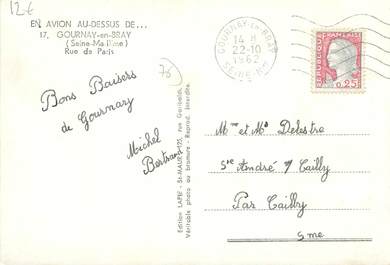 12€
EN AVION AU-DESSUS DE...
17. GOURNAY-en-BRAY
(Seine-Maritime)
Rue de Paris
76
Bons Baisers
de Gournay
Michel
Bertrand
Edition LAPIE - St-MAUR - 125, rue Garibaldi.
Véritable photo au bromure - Reprod. interdite.
GOURNAY-en-BRAY
14 H
22-10
1962
SEINE-Mme
REPUBLIQUE FRANÇAISE
0,25
Mme et Mr Delestre
Ste André s/ Cailly
Par Cailly
S me